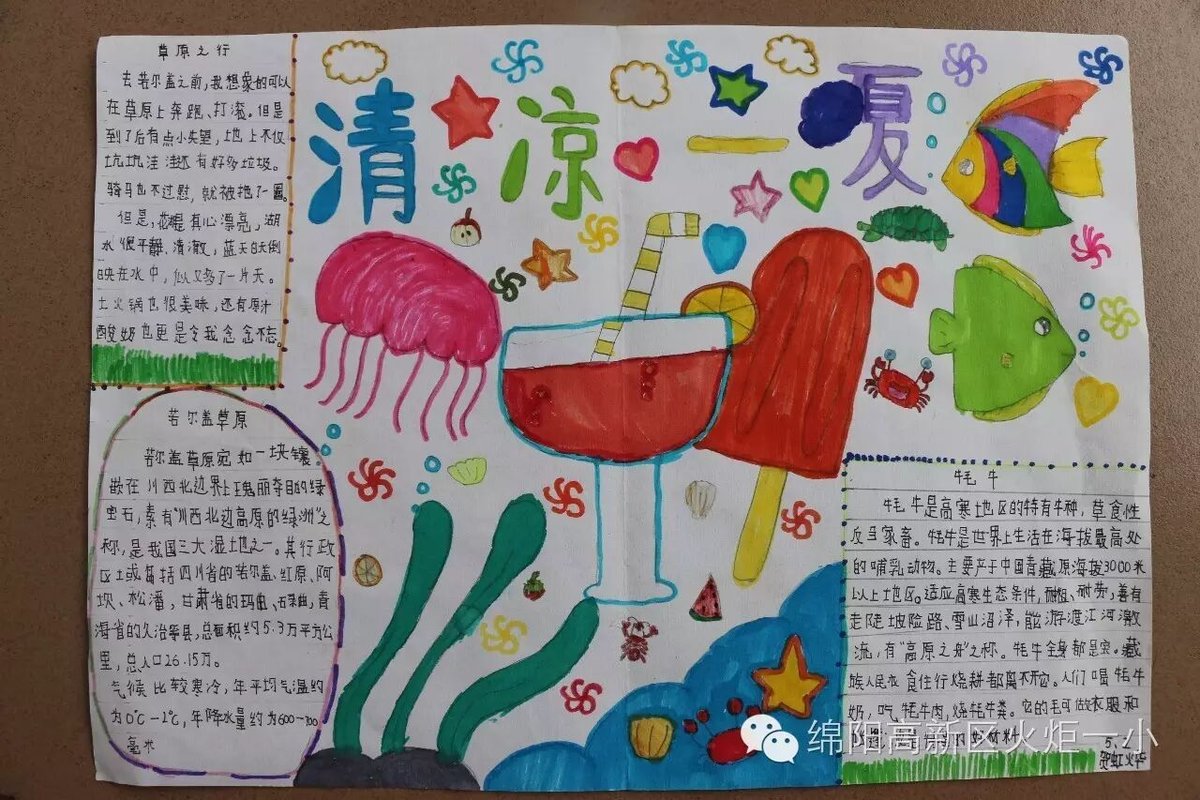 清凉一夏
草原之行
去若尔盖之前,我想象的可以
在草原上奔跑、打滚。但是
到了后有点小失望,土地上不仅
坑坑洼洼还有好多垃圾。
骑马也不过慰,就被拖了一圈。
但是,花湖真心漂亮,湖
水很平静、清澈,蓝天白天倒
映在水中,似又多了一片天。
土火锅也很美味,还有原汁
酸奶也更是令我念念不忘。
若尔盖草原
若尔盖草原宛如一块镶
嵌在川西北边界上瑰丽夺目的绿
宝石,素有“川西北边高原的绿洲”之
称,是我国三大湿地之一。其行政
区土或包括四川省的若尔盖、红原、阿
坎、松潘,甘肃省的玛曲、碌曲,青
海省的久治等县,总面积约5.3万平方公
里,总人口26.15万。
气候比较寒冷,年平均气温约
为0℃-2℃,年降水量约为600-700
毫米
牦牛
牦牛是高寒地区的特有牛种,草食性
反刍家畜。牦牛是世界上生活在海拔最高处
的哺乳动物。主要产于中国青藏原海拔3000米
以上地区。适应高寒生态条件,耐粗、耐劳,善有
走陡坡险路、雪山沼泽,能游渡江河激
流,有“高原之舟”之称。牦牛全身都是宝。藏
族人民衣食住行烧耕都离不开它。人们喝牦牛
奶,吃牦牛肉,烧牦牛粪。它的毛可做衣服和
5.2
绵阳高新区火炬一小